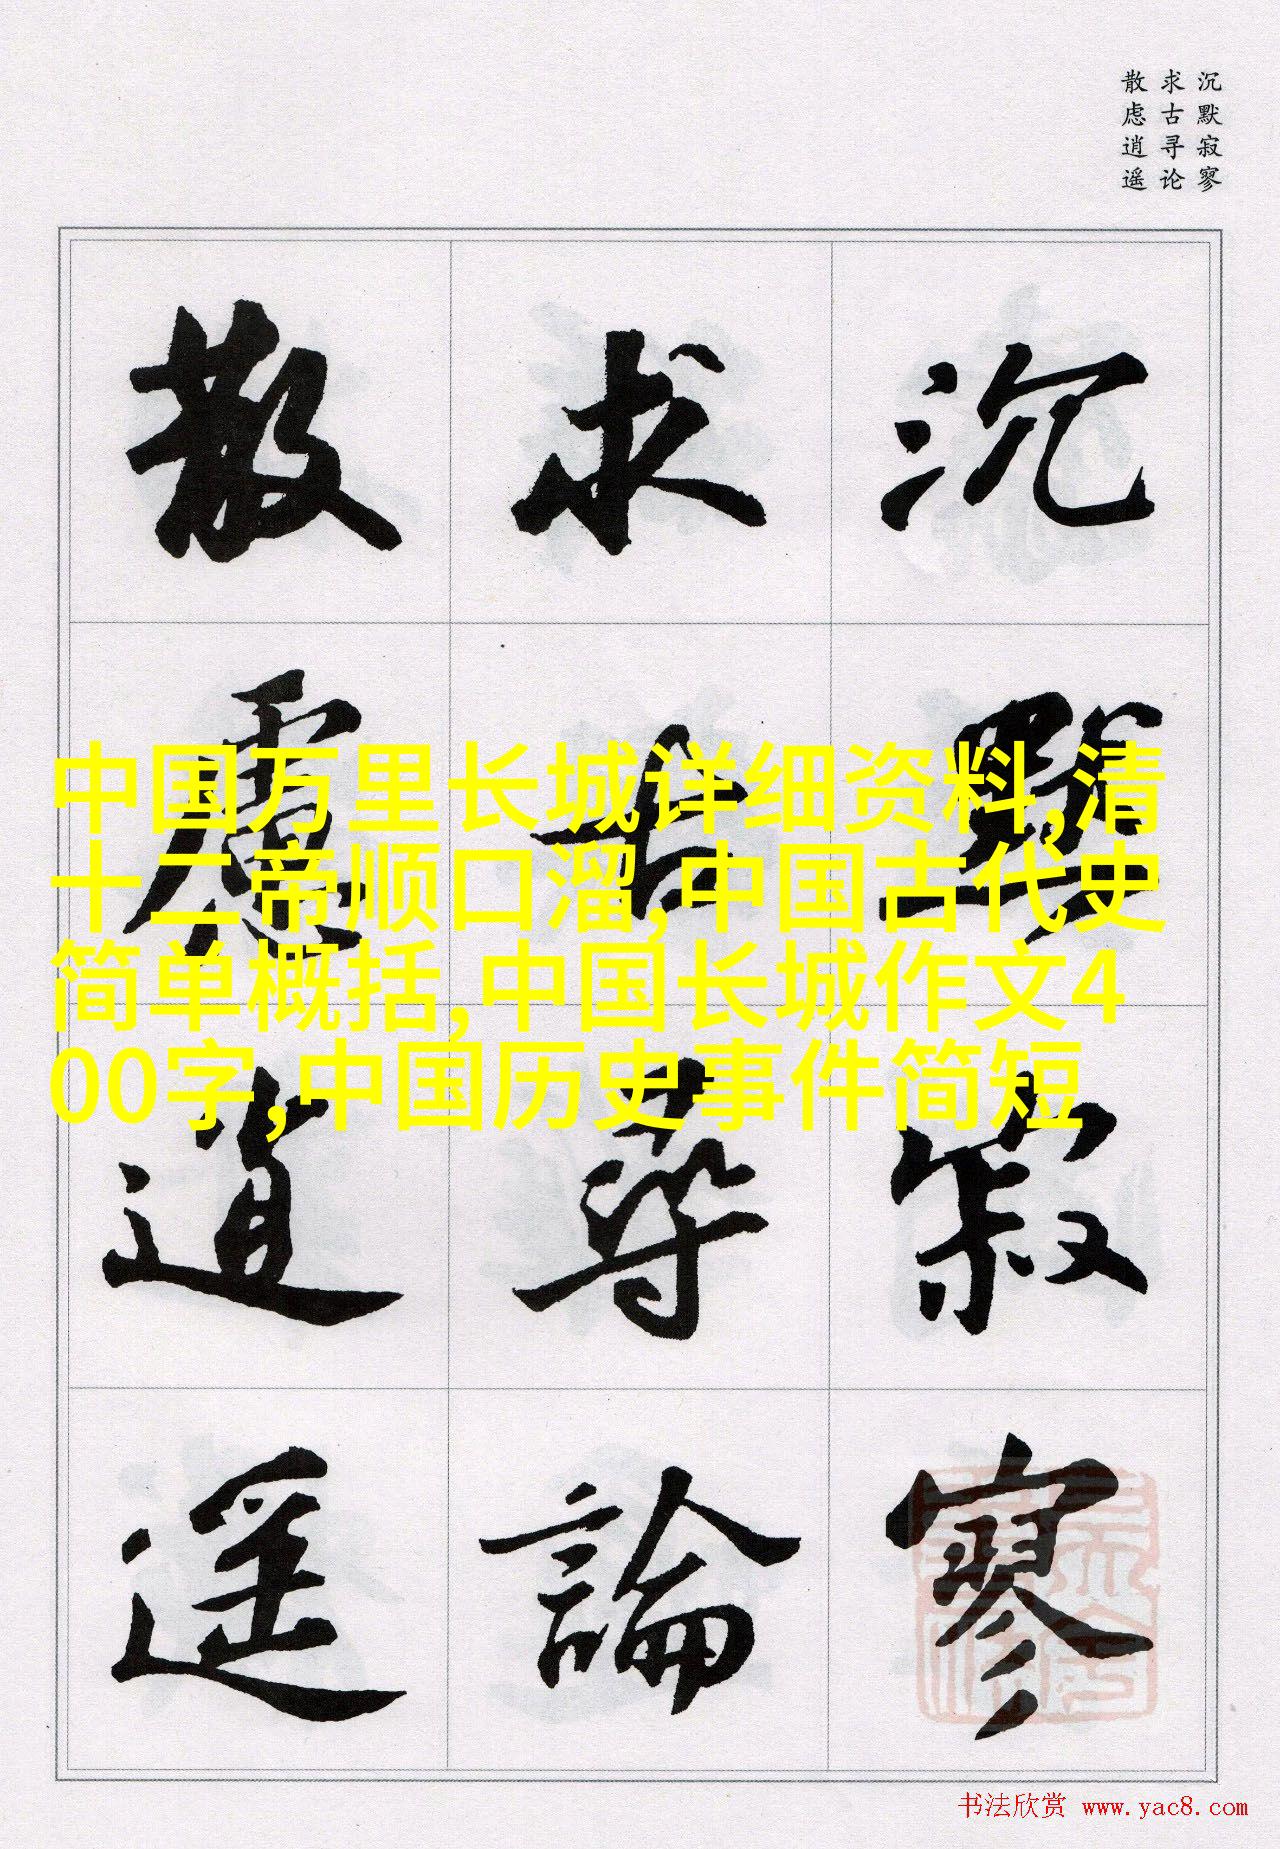 沉默寂寥
求古寻论
散虑逍遥
沉默寂寥
求古尋論
散慮逍遥
中国万里长城详细资料,清
十二帝顺口溜,中国古代史
简单概括,中国长城作文4
00字,中国历史事件简短
书法欣赏 www.yac8.com